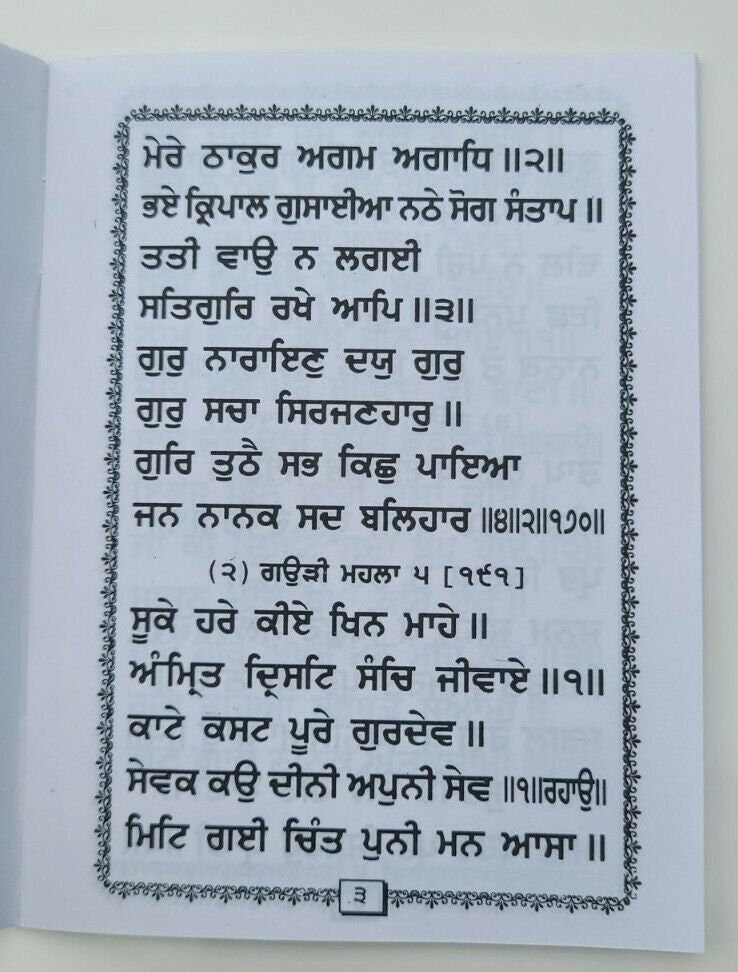 ਮੇਰੇ ਠਾਕੁਰ ਅਗਮ ਅਗਾਧਿ ॥੨॥
ਭਏ ਕ੍ਰਿਪਾਲ ਗੁਸਾਈਆ ਨਠੇ ਸੋਗ ਸੰਤਾਪ ॥
ਤਤੀ ਵਾਉ ਨ ਲਗਈ
ਸਤਿਗੁਰਿ ਰਖੇ ਆਪਿ ॥੩॥
ਗੁਰੁ ਨਾਰਾਇਣੁ ਦਯੁ ਗੁਰੁ
ਗੁਰੁ ਸਚਾ ਸਿਰਜਣਹਾਰੁ ॥
ਗੁਰਿ ਤੁਠੈ ਸਭ ਕਿਛੁ ਪਾਇਆ
ਜਨ ਨਾਨਕ ਸਦ ਬਲਿਹਾਰ ॥੪॥੨॥੧੭੦॥
(੨) ਗਉੜੀ ਮਹਲਾ ੫ [੧੯੧]
ਸੂਕੇ ਹਰੇ ਕੀਏ ਖਿਨ ਮਾਹੇ ॥
ਅੰਮ੍ਰਿਤ ਦ੍ਰਿਸਟਿ ਸੰਚਿ ਜੀਵਾਏ ॥੧॥
ਕਾਟੇ ਕਸਟ ਪੂਰੇ ਗੁਰਦੇਵ ॥
ਸੇਵਕ ਕਉ ਦੀਨੀ ਅਪੁਨੀ ਸੇਵ ॥੧॥ਰਹਾਉ॥
ਮਿਟਿ ਗਈ ਚਿੰਤ ਪੁਨੀ ਮਨ ਆਸਾ ॥
੩